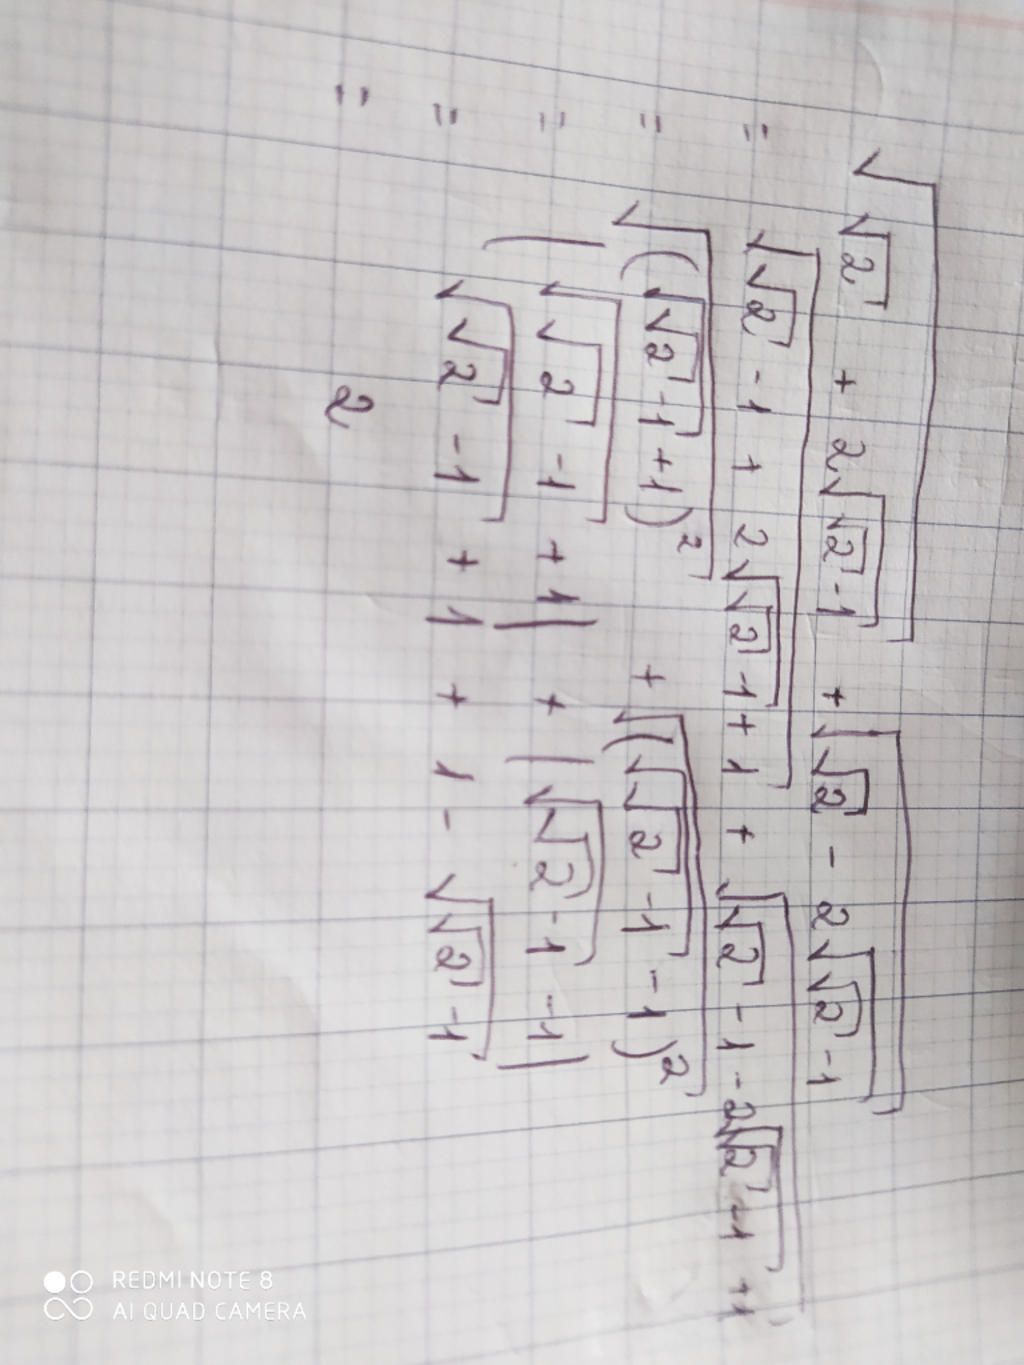 √(√2 + 2√(√2 - 1)) + √(√2 - 2√(√2 - 1))
= √(√2 - 1 + 2√(√2 - 1) + 1) + √(√2 - 1 - 2√(√2 - 1) + 1)
= √((√(√2 - 1) + 1)²) + √((√(√2 - 1) - 1)²)
= |√(√2 - 1) + 1| + |√(√2 - 1) - 1|
= √(√2 - 1) + 1 + 1 - √(√2 - 1)
= 2
REDMI NOTE 8
AI QUAD CAMERA